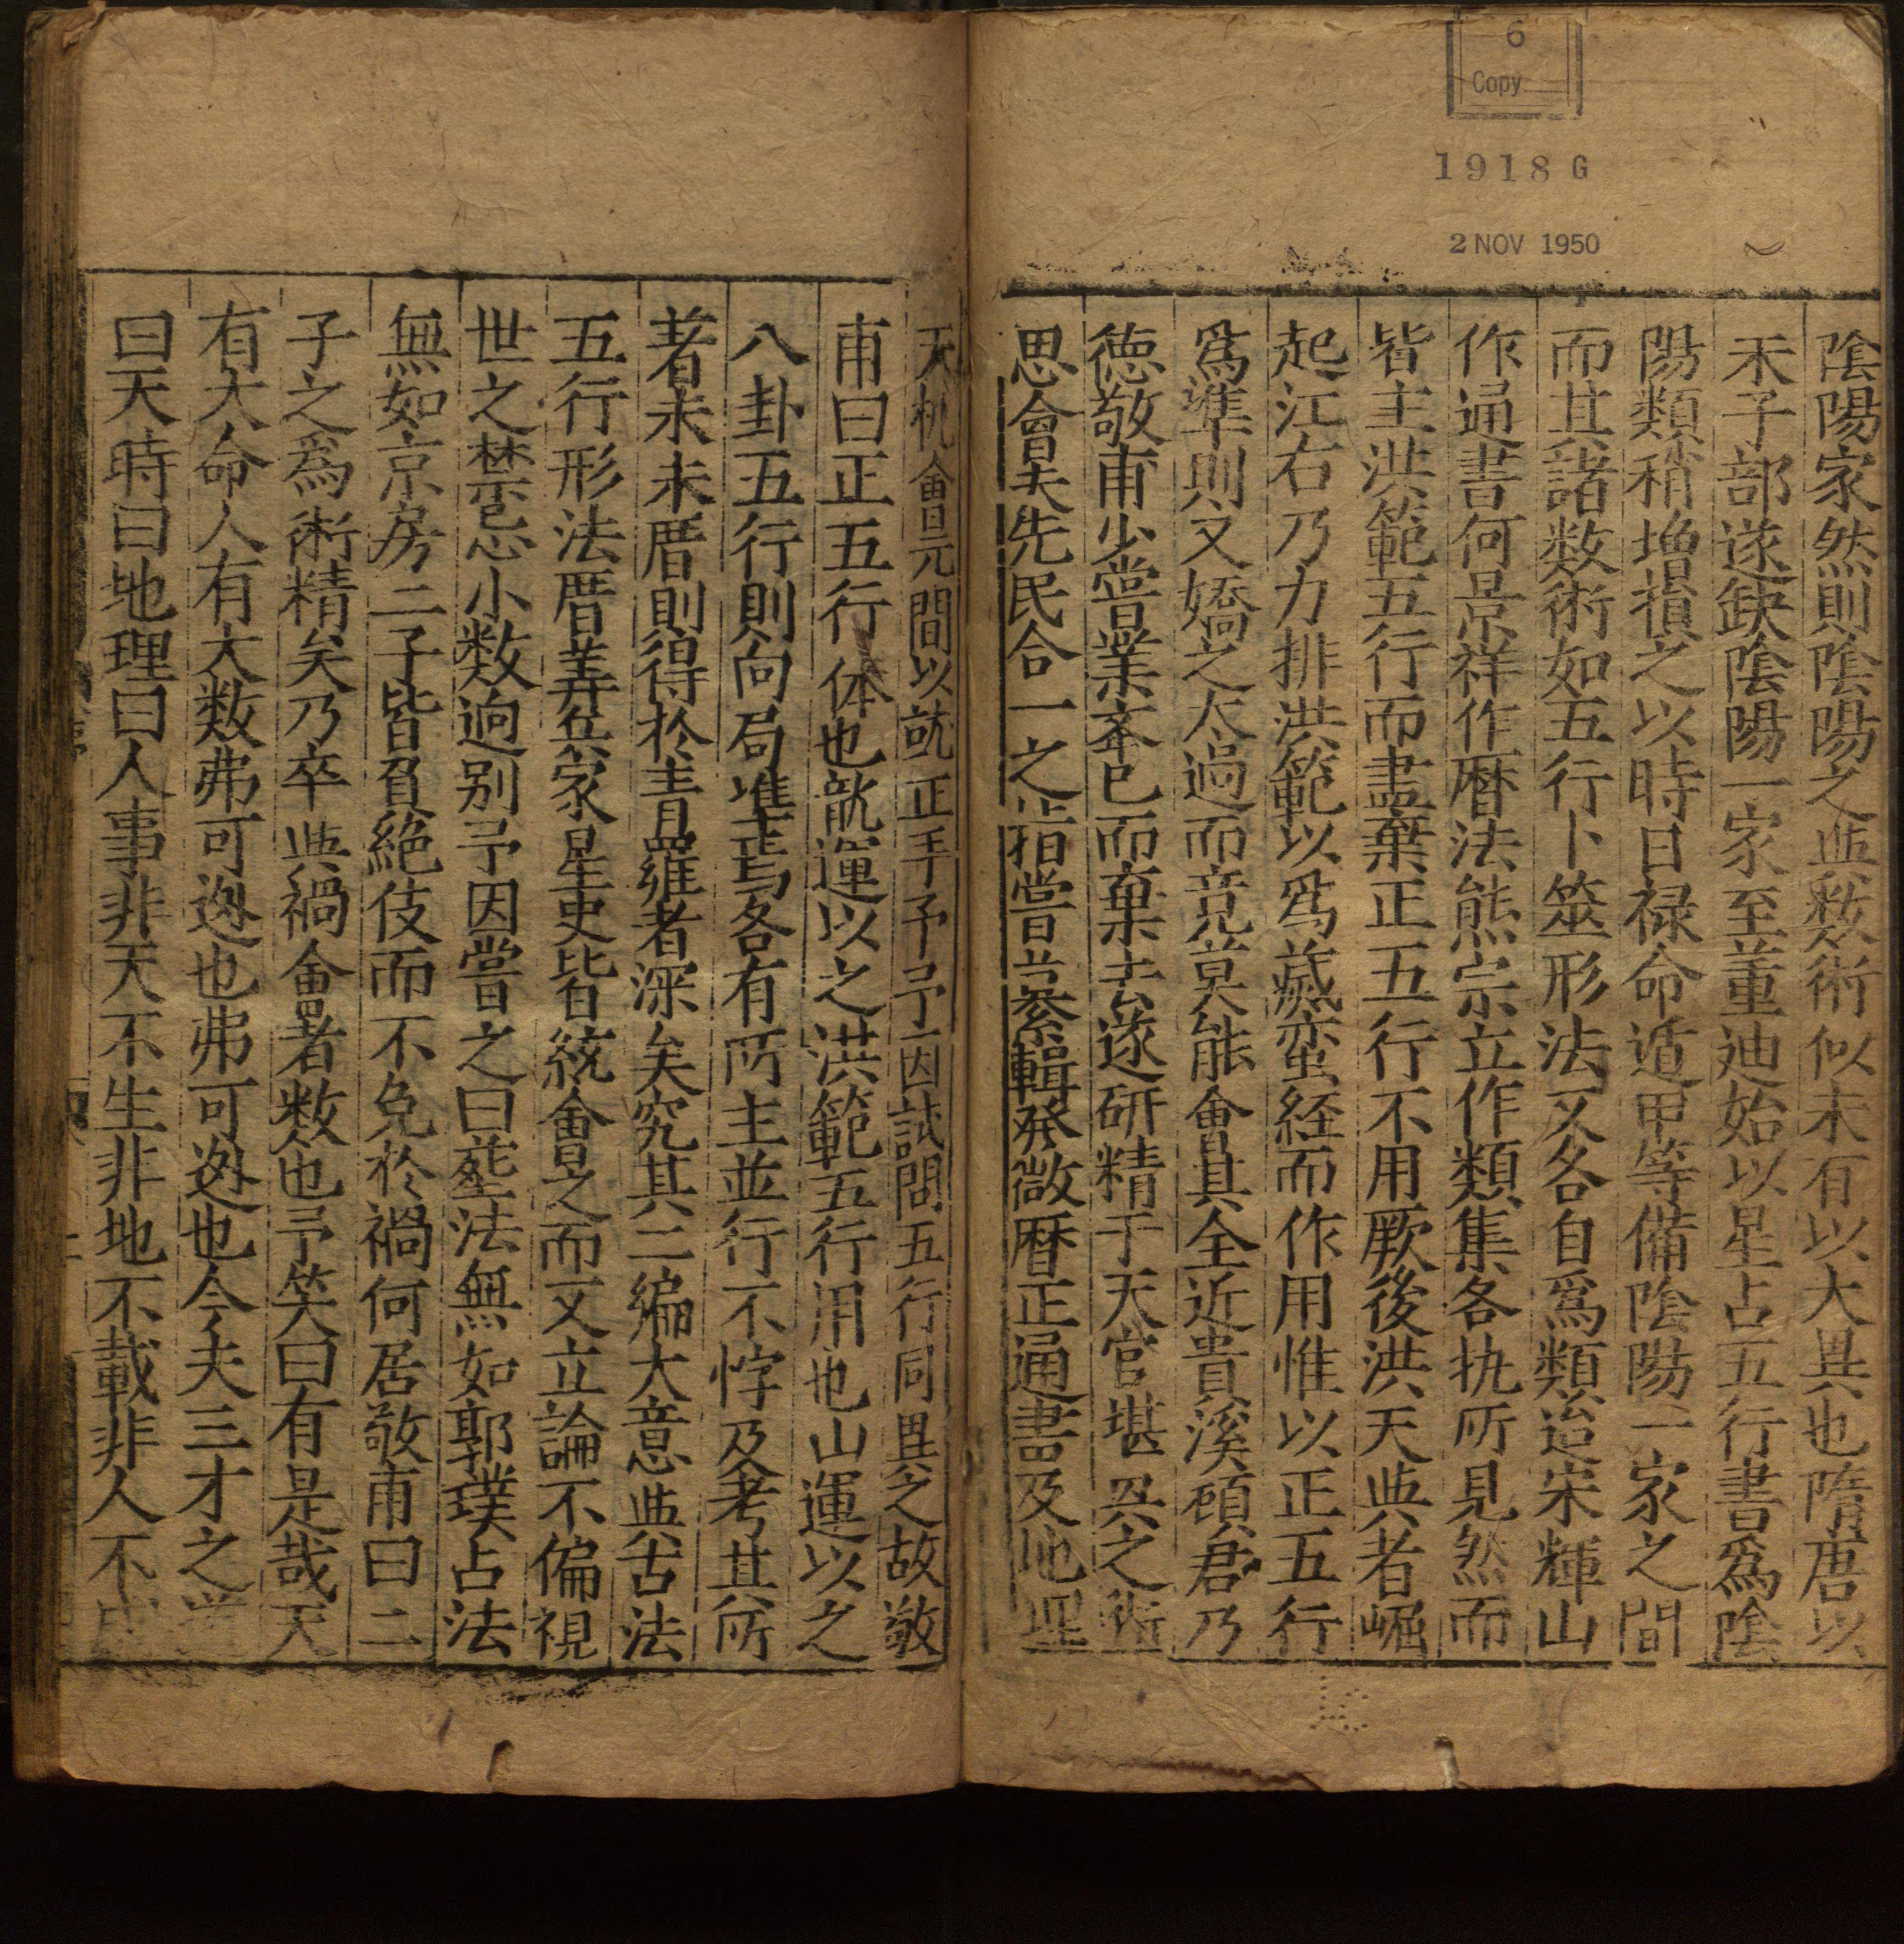 6
Copy
1918 G
2 NOV 1950
陰陽家然則陰陽之與數術似未有以大異也隋唐以
禾子部遂缺陰陽一家至董迪始以星占五行書爲陰
陽類稍增損之以時日禄命遁甲等備陰陽一家之間
而其諸数術如五行卜筮形法又各自爲類迨宋輝山
作通書何景祥作曆法熊宗立作類集各执所見然而
皆主洪範五行而盡棄正五行不用厥後洪天與者崛
起江右乃力排洪範以爲㓕蛮経而作用惟以正五行
爲準則又嬌之太過而竟莫能會其全近貴溪碩君乃
德敬甫少嘗業斉已而棄去遂研精于天官堪㒷之術
思會夫先民合一之指嘗纂輯發微曆正通書及地理
天机會元間以就正手予予因試問五行同異之故敬
甫曰正五行体也龍運以之洪範五行用也山運以之
八卦五行則向局準焉各有所主並行不悖及考其所
著未未暦則得於青羅者深矣究其二編大意與古法
五行形法暦筭兵家星史皆統會之而又立論不偏視
世之禁忌小数逈别予因嘗之曰塟法無如郭璞占法
無如京房二子皆負絶伎而不免於禍何居敬甫曰二
子之爲術精矣乃卒與禍會者数也予笑曰有是哉天
有大命人有大数弗可迯也弗可迯也今夫三才之
曰天時曰地理曰人事非天不生非地不載非人不